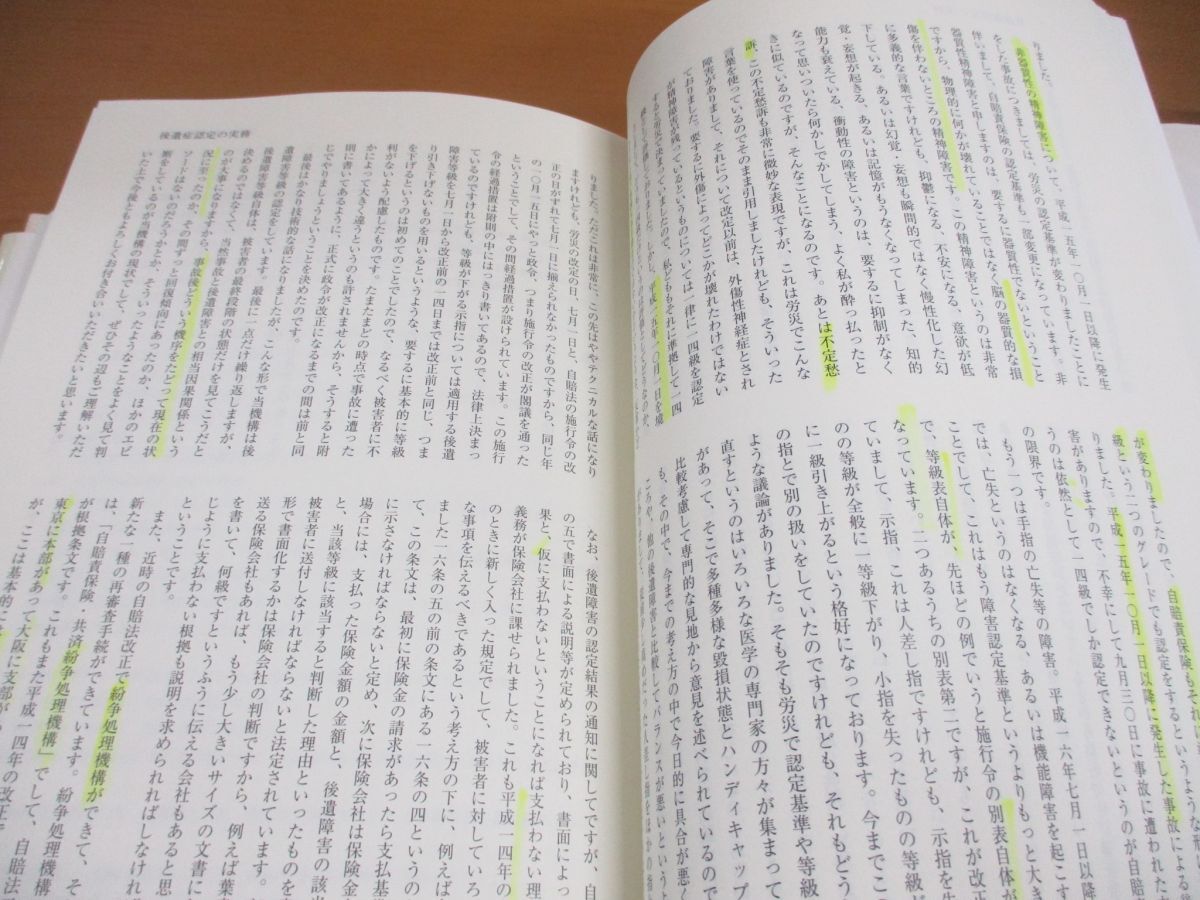 りました。
非器質性の精神障害について、平成一五年一〇月一日以降に発生
をした事故につきましては、労災の認定基準が変わりましたことに
伴いまして、自賠責保険の認定基準も一部変更になっています。非
器質性精神障害と申しますのは、要するに器質性でないということ
ですから、物理的に何かが壊れていることではなく脳の器質的な損
傷を伴わないところの精神障害です。この精神障害というのは非常
に多義的な言葉ですけれども、抑鬱になる、不安になる、意欲が低
下している。あるいは幻覚・妄想も瞬間的ではなく慢性化した幻
覚・妄想が起きる、あるいは記憶がもうなくなってしまった、知的
能力も衰えている、衝動性の障害というのは、要するに抑制がなく
なって思いついたら何かしでかしてしまう、よく私が酔っ払ったと
きに似ているのですが、そんなことになるのです。あとは不定愁
訴、この不定愁訴も非常に微妙な表現ですが、これは労災でこんな
言葉を使っているのでそのまま引用しましたけれども、そういった
障害がありまして、それについて改定以前は、外傷性神経症とされ
ておりました。要するに外傷によってどこかが壊れたわけではない
が精神障害が残っているというものについては一律に一四級を認定
すると労災で決まっていましたので、私どももそれに準拠して一四
が変わりましたので、自賠責保険もそれに
級という二つのグレードでも認定をするというような形
りました。平成一五年一〇月一日以降に発生した事故による
害がありますので、不幸にして九月三〇日に事故に遭われた方
うのは依然として一四級でしか認定できないというのが自賠
の限界です。
もう一つは手指の亡失等の障害。平成一六年七月一日以降
では、亡失というのはなくなる、あるいは機能障害を起こす
ことでして、これはもう障害認定基準というよりもっと大き
で、等級表自体が、先ほどの例でいうと施行令の別表自体が
なっています。二つあるうちの別表第二ですが、これが改正
ていまして、示指、これは人差し指ですけれども、示指を失
のの等級が全般に一等級下がり、小指を失ったものの等級
に一級引き上がるという格好になっております。今までこ
の指とで別の扱いをしていたのですけれども、それもどう
ような議論がありました。そもそも労災で認定基準や等級
直すというのはいろいろな医学の専門家の方々が集まって
があって、そこで多種多様な毀損状態とハンディキャップ
比較考慮して専門的な見地から意見を述べられているので
も、その中で、今までの考え方の中で今日的に具合が悪く
ころや、他の後遺障害と比較してバランスが悪いという
後遺症認定の実務
りました。ただこれは非常に、この先はややテクニカルな話になり
ますけれども、労災の改定の日、七月一日と、自賠法の施行令の改
正の日がずれて七月一日に揃えられなかったものですから、同じ年
の一〇月一五日にやっと政令、つまり施行令の改正が閣議を通った
ということでして、その間経過措置が設けられています。この施行
令の経過措置は附則の中にはっきり書いてあるので、法律上決まっ
ているのですけれども、等級が下がる示指については適用する後遺
障害等級を七月一日から改正前の一四日までは改正前と同じ、つま
り引き下げないものを用いるというような、要するに基本的に等級
を下げるというのは初めてのことでしたので、なるべく被害者に不
利がないよう配慮したものです。たまたまどの時点で事故に遭った
かによって大きく違うというのも許されませんから、そうすると附
則に書いてあるように、正式に政令が改正になるまでの間は前と同
じでやりましょうということを決めたのです。
最後はかなり技術的な話になりましたが、こんな形で当機構は後
遺障害等級の認定をしています。最後に一点だけ繰り返しますが、
後遺障害等級自体は、被害者の最終段階の状態だけを見てこうだと
決めるのではなくて、当然事故と後遺障害との相当因果関係という
のが大事になりますから、事故後どういう機序をたどって現在の状
況に至ったのか、その間ずっと回復傾向にあったのか、ほかのエピ
ソードはないのだろうかとか、そういったようなことをよく見て判
断をしているのが当機構の現状でして、ぜひその辺もご理解いただ
いた上で今後ともよろしくお付き合いいただきたいと思います。
なお、後遺障害の認定結果の通知に関してですが、自
の五で書面による説明等が定められており、書面によっ
果と、仮に支払わないということになれば支払わない理
義務が保険会社に課せられました。これも平成一四年の
のときに新しく入った規定でして、被害者に対していろ
な事項を伝えるべきであるという考え方の下に、例えば
ました一六条の五の前の条文にある一六条の四という
て、この条文は、最初に保険金の請求があったら支払基
に示さなければならないと定め、次に保険会社は保険金
場合には、支払った保険金額の金額と、後遺障害の該当
と、当該等級に該当すると判断した理由といったものを
被害者に送付しなければならないと法定されています。
形で書面化するかは保険会社の判断ですから、例えば葉
送る保険会社もあれば、もう少し大きいサイズの文書に
を書いて、何級ですというふうに伝える会社もあると思
じように支払わない根拠も説明を求められればしなけれ
ということです。
また、近時の自賠法改正で紛争処理機構ができて、そ
新たな一種の再審査手続ができています。紛争処理機構
は、「自賠責保険・共済紛争処理機構」でして、自賠法
が根拠条文です。これもまた平成一四年の改正で
東京に本部があって大阪に支部が
が、ここは基本的に